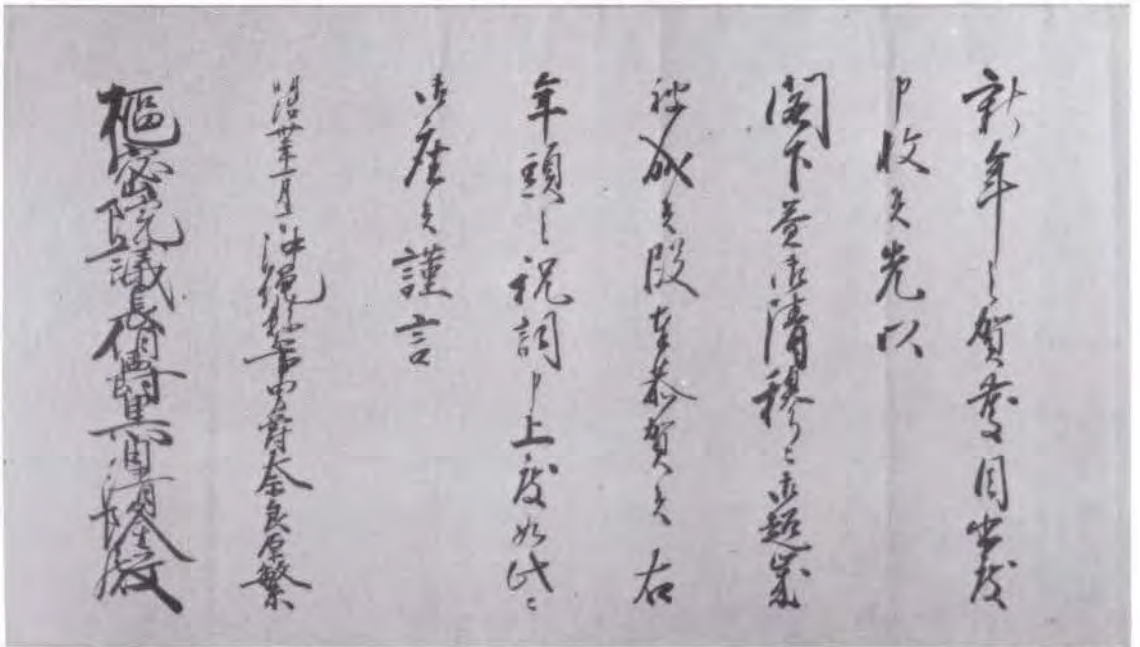 新年之賀慶目出度
申収候先以
閣下益御清穆ニ御超歳
被成候段奉恭賀候右
年頭之祝詞申上度如此ニ
御座候謹言
明治卅年一月 沖縄県知事男爵奈良原繁
枢密院議長伯爵黒田清隆殿